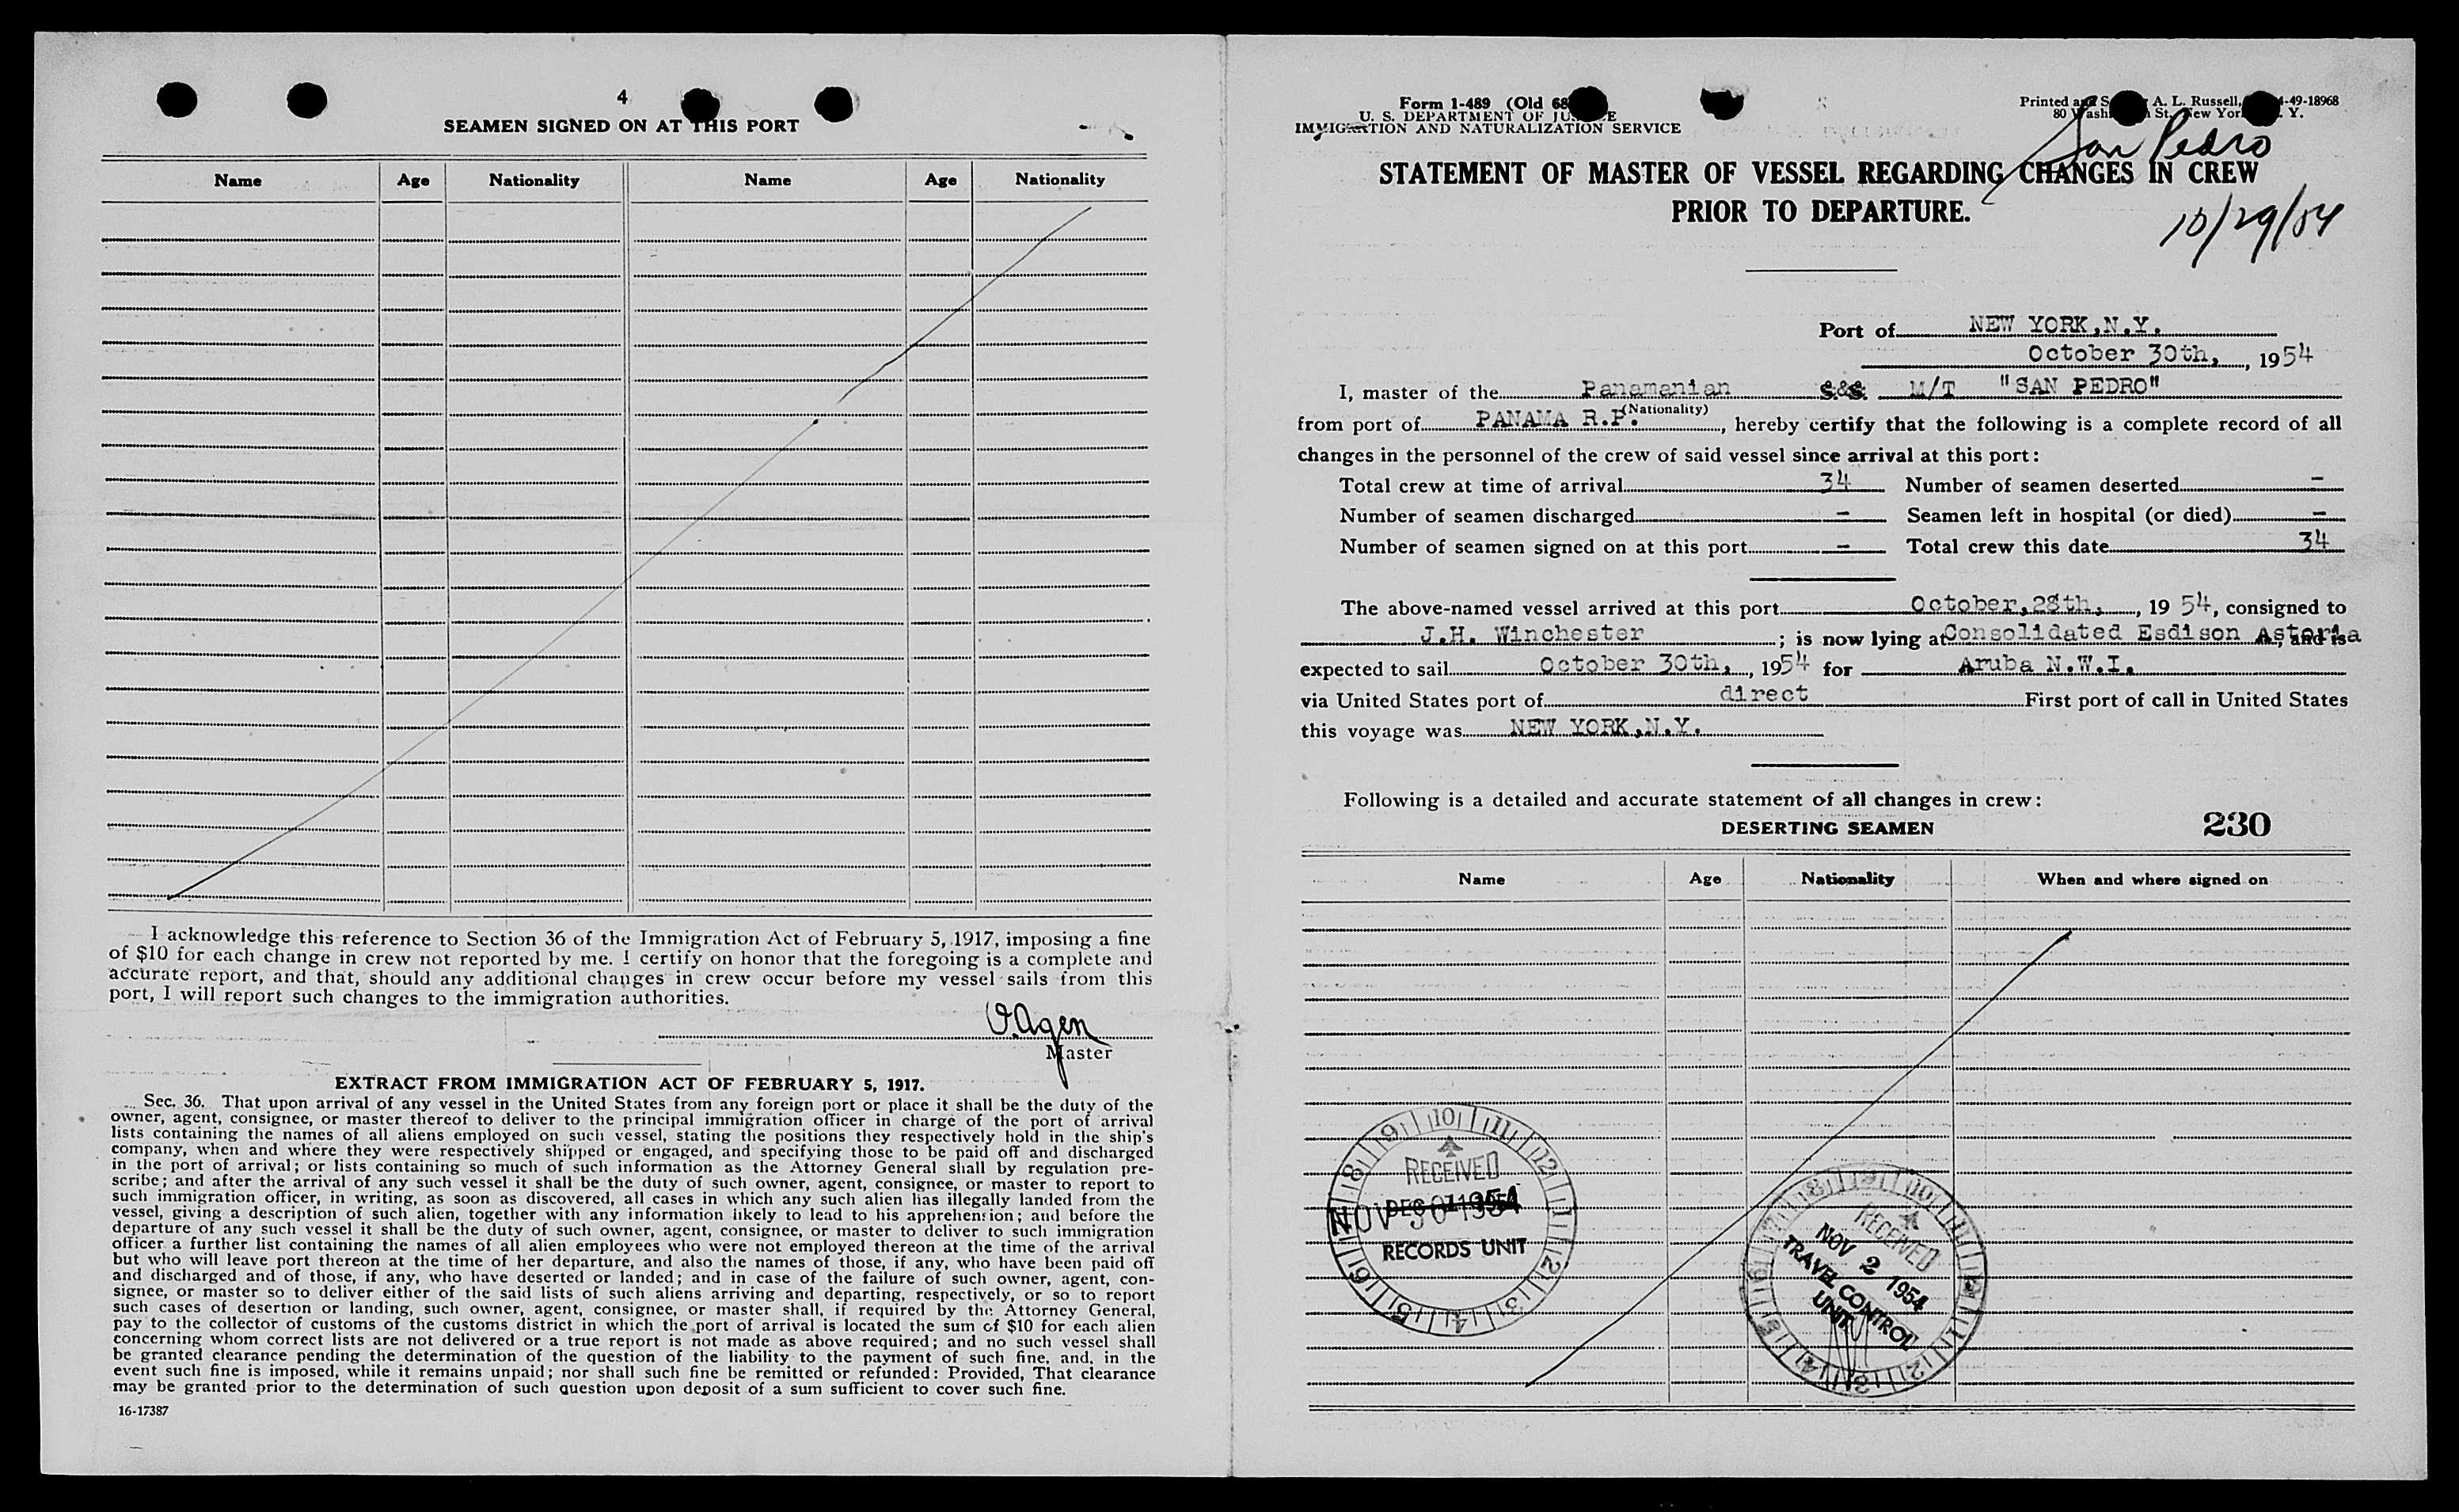 4
SEAMEN SIGNED ON AT THIS PORT
Name Age Nationality Name Age Nationality
I acknowledge this reference to Section 36 of the Immigration Act of February 5, 1917, imposing a fine
of $10 for each change in crew not reported by me. I certify on honor that the foregoing is a complete and
accurate report, and that, should any additional changes in crew occur before my vessel sails from this
port, I will report such changes to the immigration authorities.
O. Agen
Master
EXTRACT FROM IMMIGRATION ACT OF FEBRUARY 5, 1917.
Sec. 36. That upon arrival of any vessel in the United States from any foreign port or place it shall be the duty of the
owner, agent, consignee, or master thereof to deliver to the principal immigration officer in charge of the port of arrival
lists containing the names of all aliens employed on such vessel, stating the positions they respectively hold in the ship's
company, when and where they were respectively shipped or engaged, and specifying those to be paid off and discharged
in the port of arrival; or lists containing so much of such information as the Attorney General shall by regulation pre-
scribe; and after the arrival of any such vessel it shall be the duty of such owner, agent, consignee, or master to report to
such immigration officer, in writing, as soon as discovered, all cases in which any such alien has illegally landed from the
vessel, giving a description of such alien, together with any information likely to lead to his apprehension; and before the
departure of any such vessel it shall be the duty of such owner, agent, consignee, or master to deliver to such immigration
officer a further list containing the names of all alien employees who were not employed thereon at the time of the arrival
but who will leave port thereon at the time of her departure, and also the names of those, if any, who have been paid off
and discharged and of those, if any, who have deserted or landed; and in case of the failure of such owner, agent, con-
signee, or master so to deliver either of the said lists of such aliens arriving and departing, respectively, or so to report
such cases of desertion or landing, such owner, agent, consignee, or master shall, if required by the Attorney General,
pay to the collector of customs of the customs district in which the port of arrival is located the sum of $10 for each alien
concerning whom correct lists are not delivered or a true report is not made as above required; and no such vessel shall
be granted clearance pending the determination of the question of the liability to the payment of such fine, and, in the
event such fine is imposed, while it remains unpaid; nor shall such fine be remitted or refunded: Provided, That clearance
may be granted prior to the determination of such question upon deposit of a sum sufficient to cover such fine.
16-17387
Form 1-489 (Old 68
U. S. DEPARTMENT OF JUSTICE
IMMIGRATION AND NATURALIZATION SERVICE
Printed and S A. L. Russell, 4-49-18968
80 Wash St. New York N. Y.
San Pedro
STATEMENT OF MASTER OF VESSEL REGARDING CHANGES IN CREW
PRIOR TO DEPARTURE.
10/29/54
Port of NEW YORK,N.Y.
October 30th, , 1954
I, master of the Panamanian S.S. M/T "SAN PEDRO"
(Nationality)
from port of PANAMA R.P. , hereby certify that the following is a complete record of all
changes in the personnel of the crew of said vessel since arrival at this port:
Total crew at time of arrival 34 Number of seamen deserted -
Number of seamen discharged - Seamen left in hospital (or died) -
Number of seamen signed on at this port - Total crew this date 34
The above-named vessel arrived at this port October,28th, , 19 54, consigned to
J.H. Winchester ; is now lying at Consolidated Esdison Astoria , and is
expected to sail October 30th, , 1954 for Aruba N.W.I.
via United States port of direct First port of call in United States
this voyage was NEW YORK,N.Y.
Following is a detailed and accurate statement of all changes in crew:
DESERTING SEAMEN 230
Name Age Nationality When and where signed on
9 10 11 12 1 2 3 4 5 6 8
RECEIVED
NOV 30 1954
RECORDS UNIT
RECEIVED
NOV 2 1954
TRAVEL CONTROL
UNIT